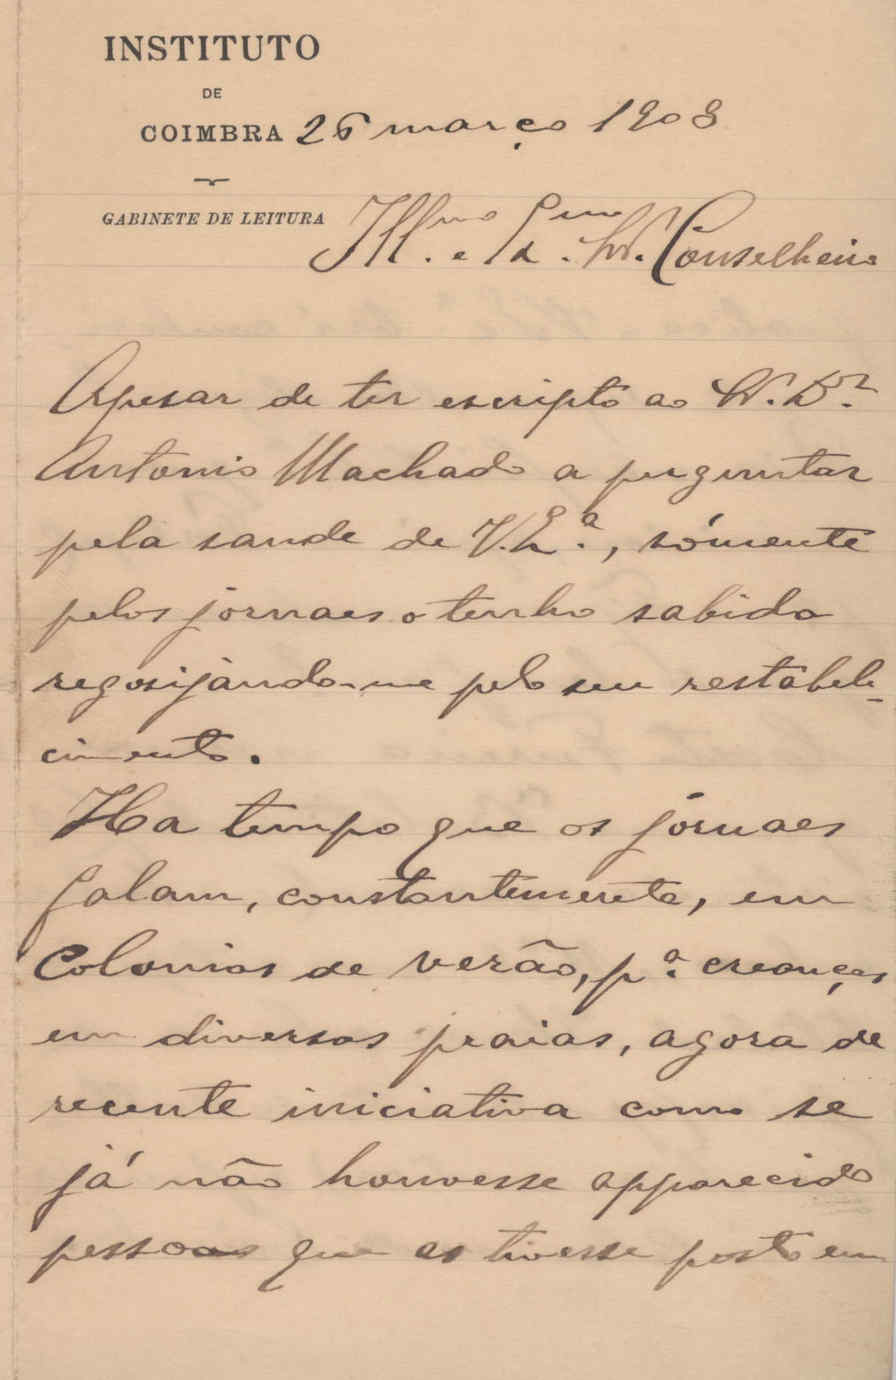 INSTITUTO
DE
COIMBRA 26 março 1908
GABINETE DE LEITURA
Ill.mo e Ex.mo Sr. Conselheiro
Apesar de ter escripto ao Sr. Dr.
Antonio Machado a preguntar
pela saude de V. Ex.ª, sómente
pelos jornaes o tenho sabido
regosijando-me pelo seu restabele-
cimento.
Ha tempo que os jornaes
falam, constantemente, em
Colonias de verão, p.ª creanças
em diversas praias, agora de
recente iniciativa como se
já não houvesse apparecido
pessoas que as tivesse posto em